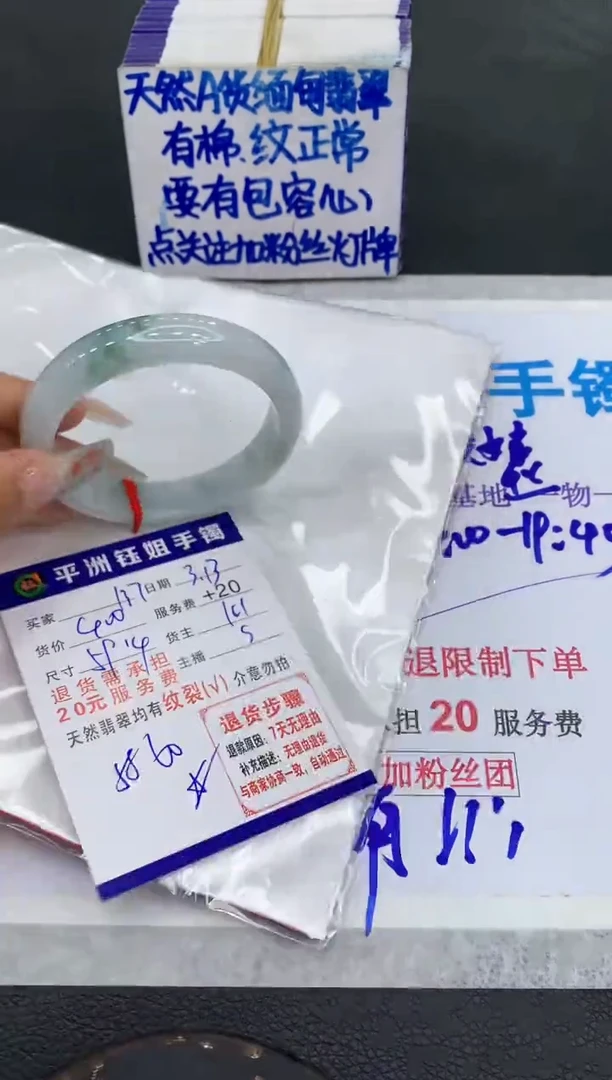 天然A货缅甸翡翠
有棉、纹正常
要有包容心
点关注加粉丝灯牌
手镯
基地 一物一
平洲钰姐手镯
买家 177 日期 3.13
货价 服务费 +20
尺寸 货主 161
主播 5
退货需承担
20元服务费
天然翡翠均有纹裂(√) 介意勿拍
退货步骤
退款原因：7天无理由
补充描述：无理由退货
与商家协商一致，自动通过
退限制下单
担 20 服务费
加粉丝团